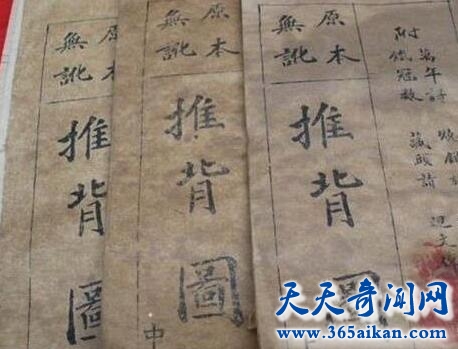 附
原本
無訛
推背圖
原本
無訛
推背圖
中
原本
無訛
推背圖
天天奇闻网
www.365aikan.com